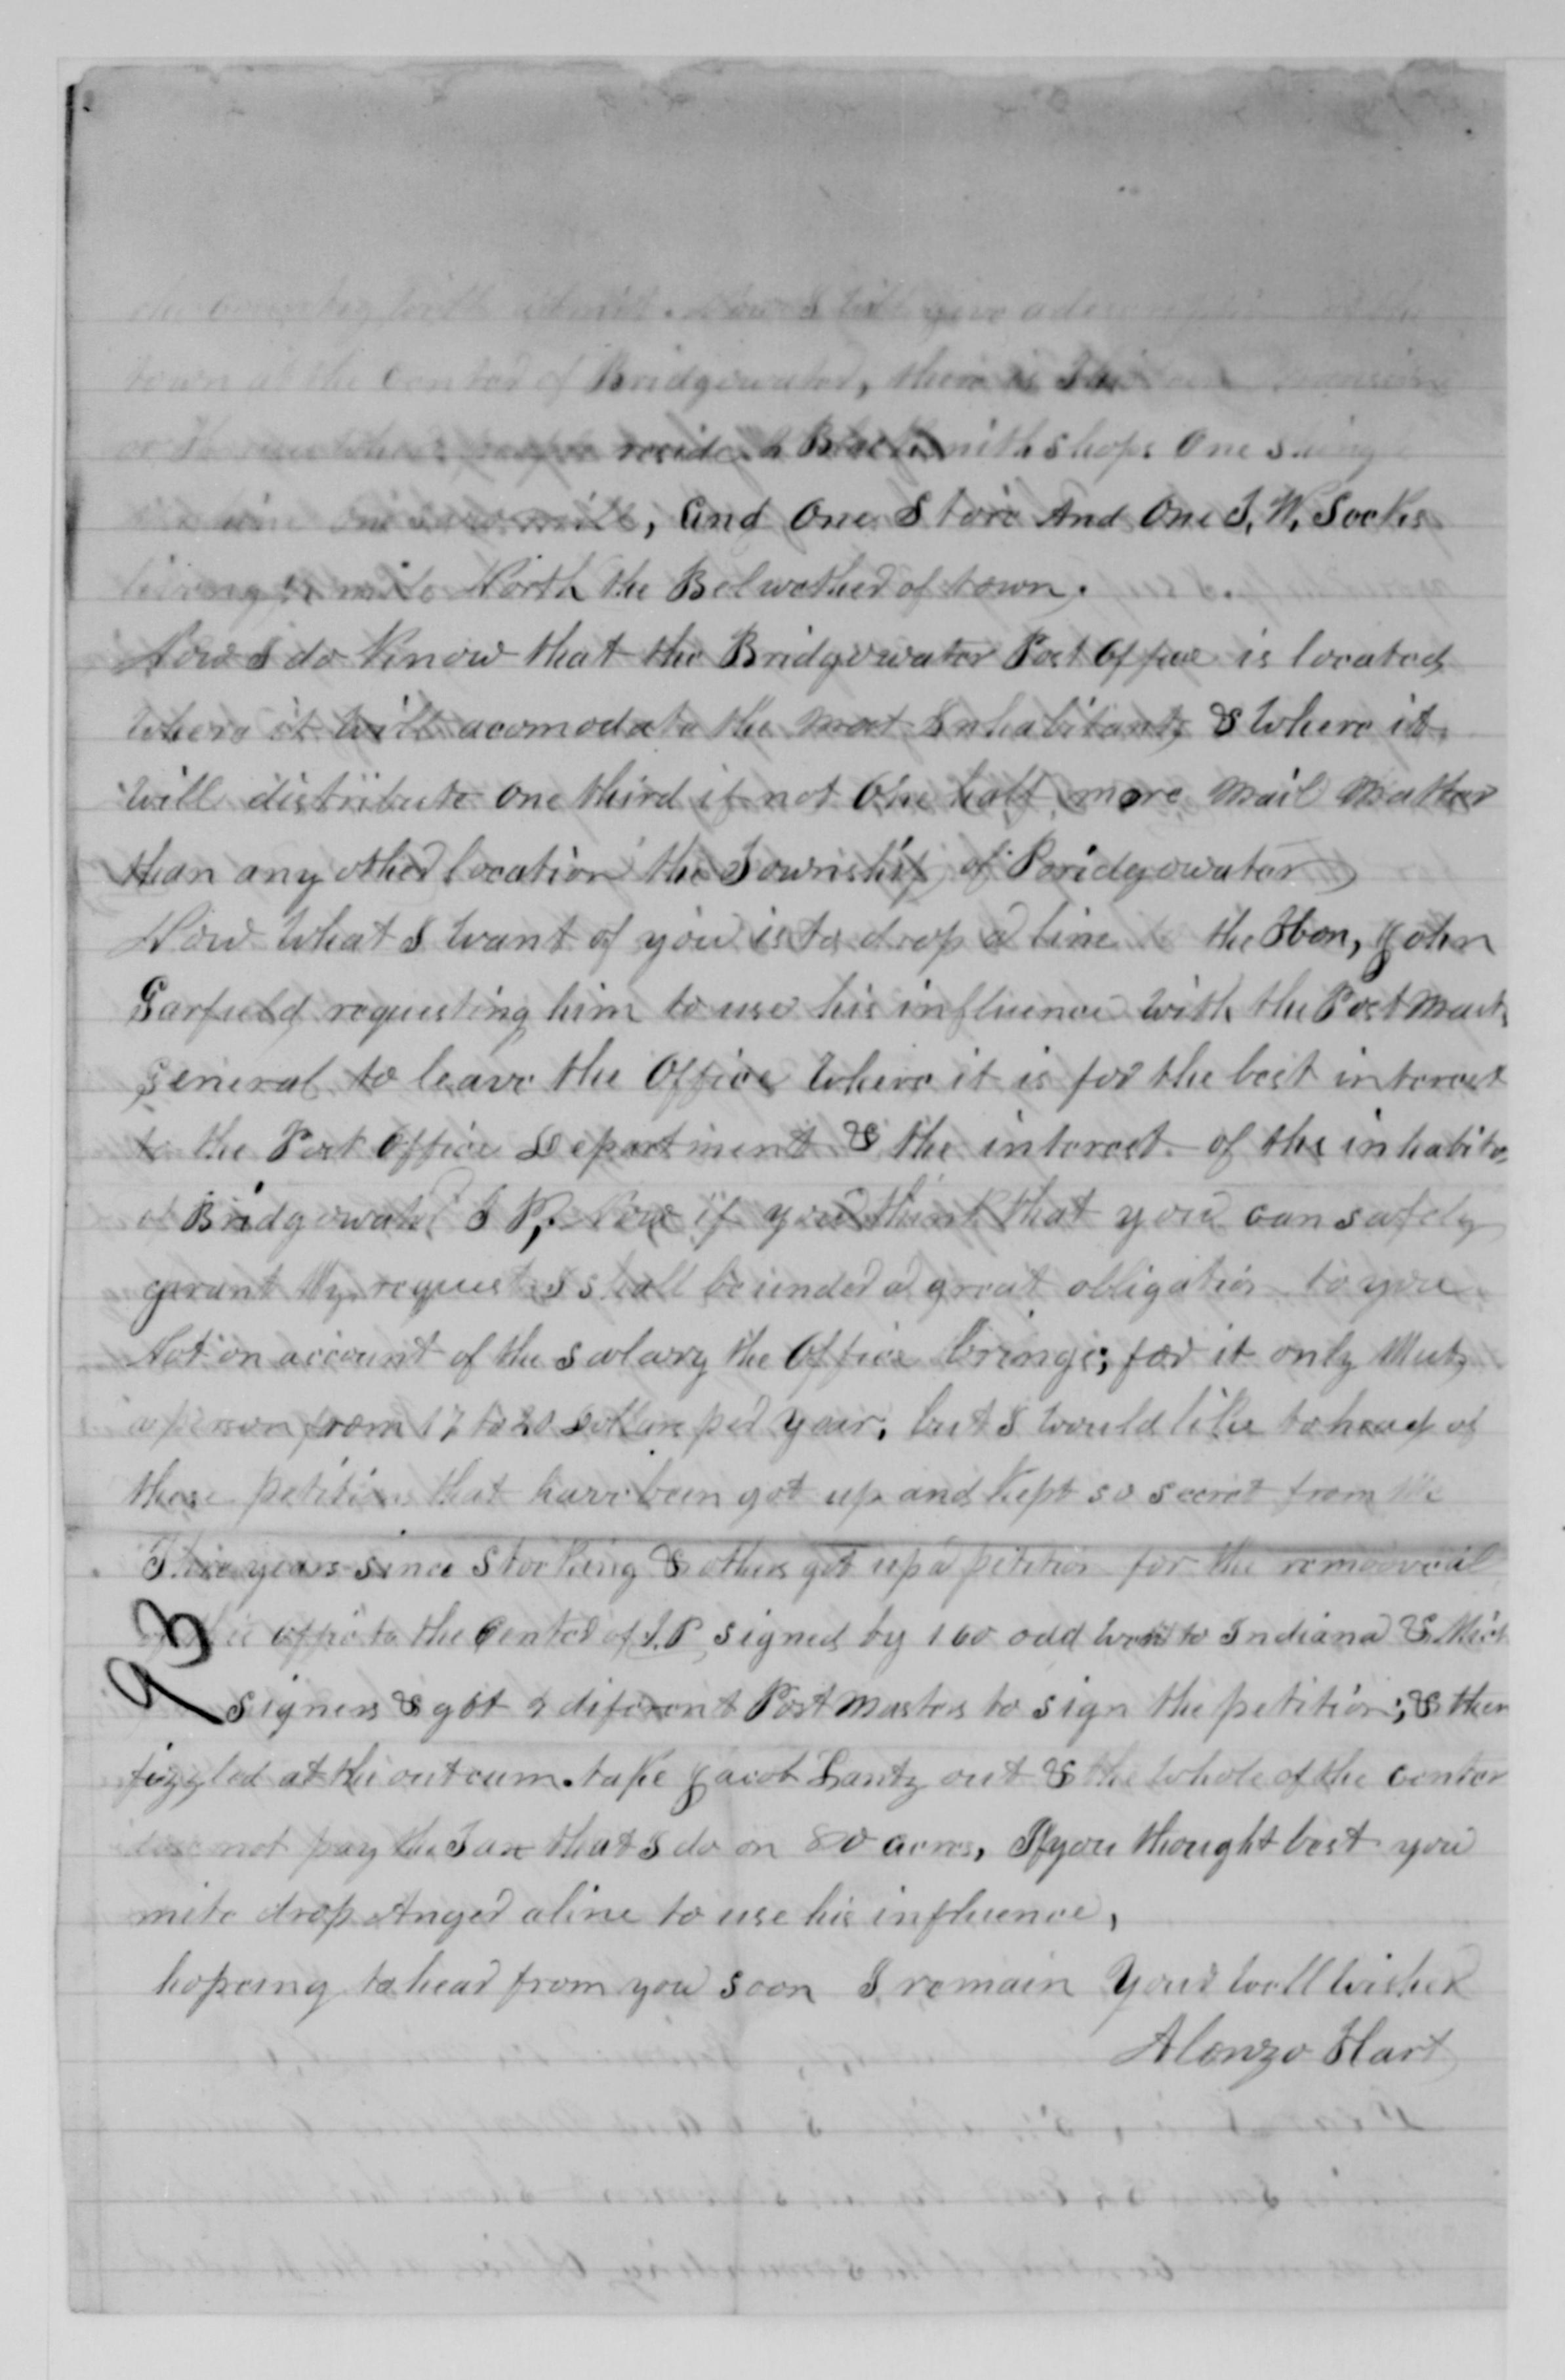 our country will admit. Now I will give a description of the
town at the Center of Bridgewater, there is
reside. 2 Blacksmith shops One
One saw mill, and One Store And One J. W. Socks
living ½ mile North the Belwether of town.
Now I do Know that the Bridgewater Post Office is located
where it will acomodate the most Inhabitants & Where it
will distribute One third if not One half more Mail Matter
than any other location the Township of Bridgewater
Now What I Want of you is to drop a line to the Hon, John
Garfield requesting him to use his influence With the Post Mast
General to leave the Office Where it is for the best interest
to the Post Office Department & the interest of the inhabits
of Bridgewater T P, Now if you think that you can safely
grant My request I shall be under a great obligation to you
Not on account of the Salary the Office brings; for it only Nets
a person from 17 to 20 Dollars per Year, but I would like to head of
these petitions that have been got up and Kept so secret from Me
years since Stocking & others got up a petition for the remooveal
of the office to the Center of T. P. signed by 160 odd went to Indiana & Mich
93 signers & got 2 diferent Post Masters to sign the petition; & then
fizzled at the outcum. take Jacob Lantz out & the Whole of the center
dose not pay the Tax that I do on 80 acres, If you thought best you
mite drop Anger a line to use his influence,
hopeing to hear from you soon I remain Your Well Wisher
Alonzo Hart